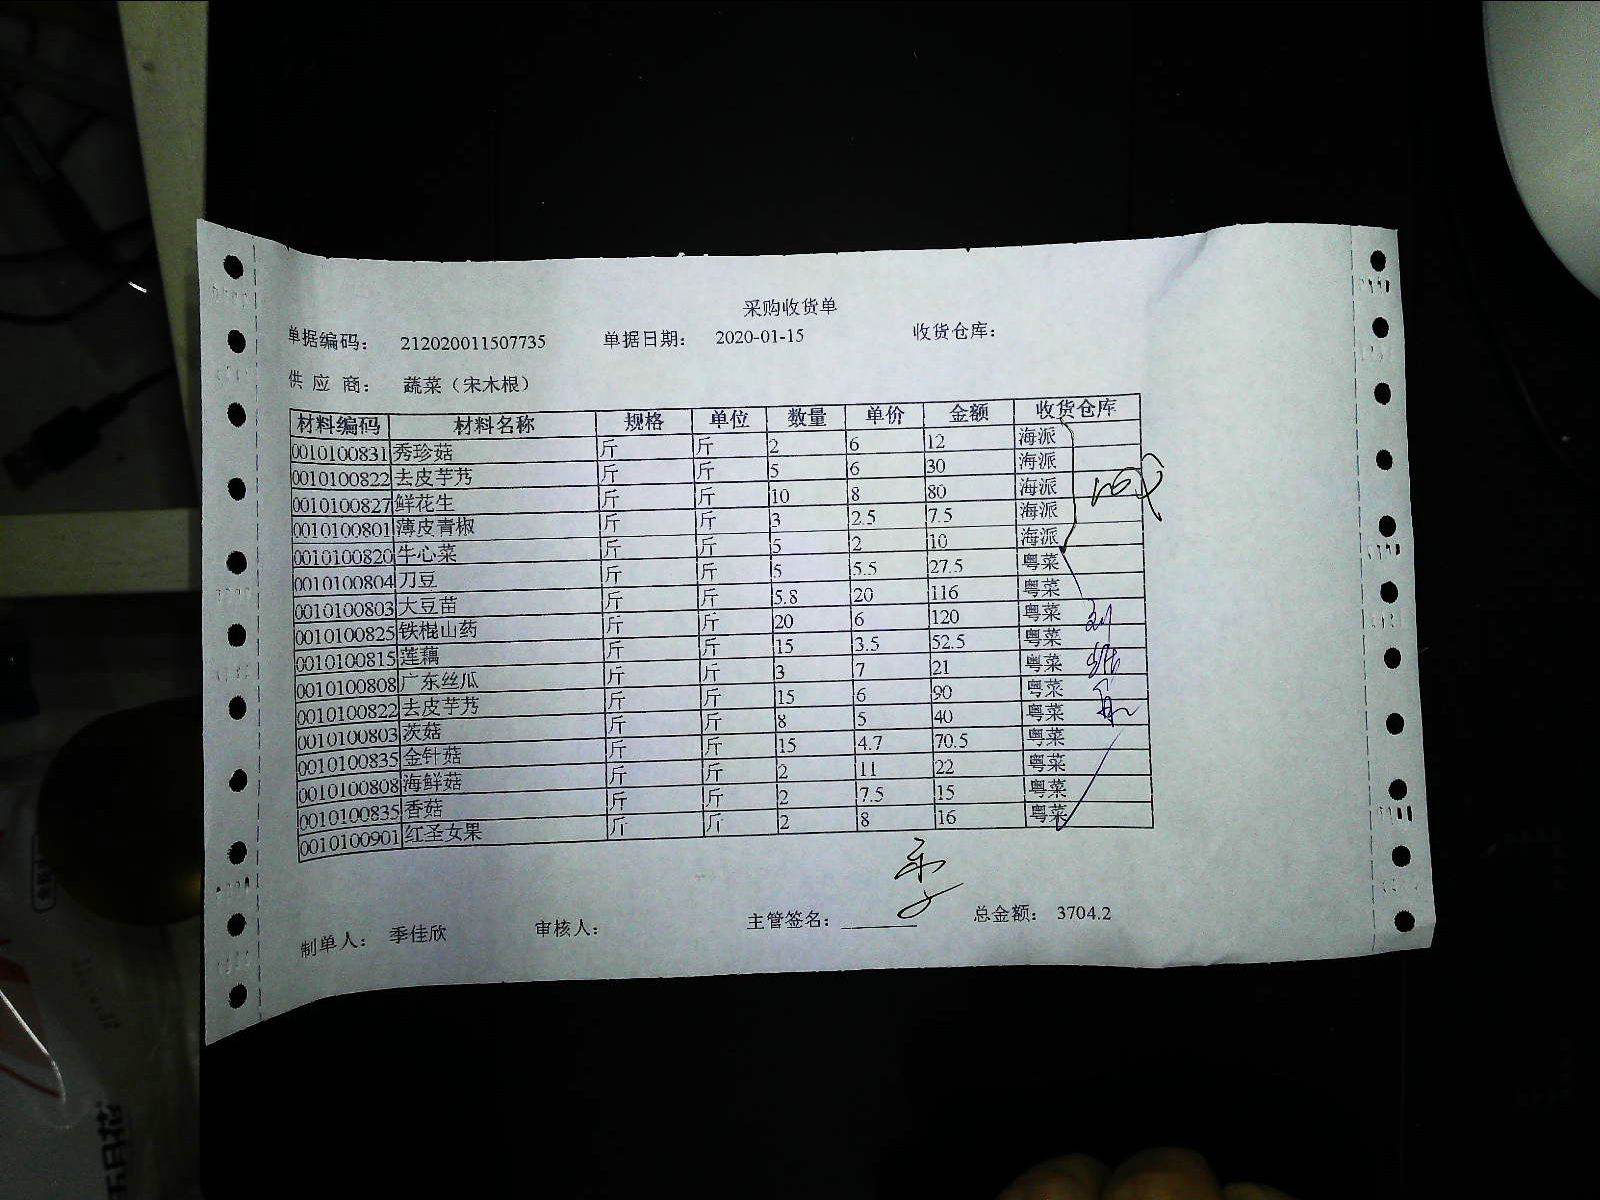 采购收货单
单据编码： 212020011507735 单据日期： 2020-01-15 收货仓库：
供 应 商： 蔬菜（宋木根）
材料编码 材料名称 规格 单位 数量 单价 金额 收货仓库
0010100831 秀珍菇 斤 斤 2 6 12 海派
0010100822 去皮芋艿 斤 斤 5 6 30 海派
0010100827 鲜花生 斤 斤 10 8 80 海派
0010100801 薄皮青椒 斤 斤 3 2.5 7.5 海派
0010100820 牛心菜 斤 斤 5 2 10 海派
0010100804 刀豆 斤 斤 5 5.5 27.5 粤菜
0010100803 大豆苗 斤 斤 5.8 20 116 粤菜
0010100825 铁棍山药 斤 斤 20 6 120 粤菜
0010100815 莲藕 斤 斤 15 3.5 52.5 粤菜
0010100808 广东丝瓜 斤 斤 3 7 21 粤菜
0010100822 去皮芋艿 斤 斤 15 6 90 粤菜
0010100803 茨菇 斤 斤 8 5 40 粤菜
0010100835 金针菇 斤 斤 15 4.7 70.5 粤菜
0010100808 海鲜菇 斤 斤 2 11 22 粤菜
0010100835 香菇 斤 斤 2 7.5 15 粤菜
0010100901 红圣女果 斤 斤 2 8 16 粤菜
制单人： 季佳欣 审核人： 主管签名： 总金额： 3704.2